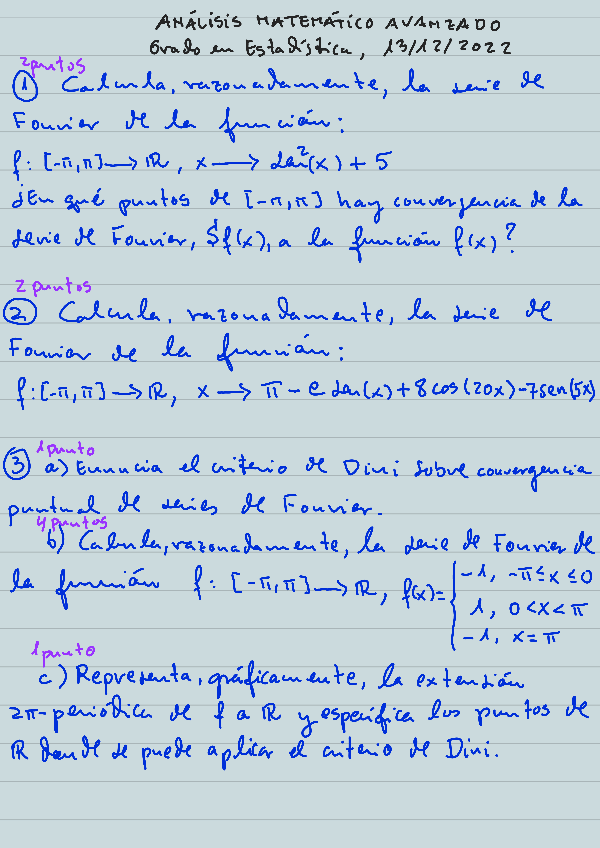 ANÁLISIS MATEMÁTICO AVANZADO
Grado en Estadística, 13/12/2022
2 puntos
① Calcula, razonadamente, la serie de
Fourier de la función:
f: [-π,π] → ℝ, x → sen²(x) + 5
¿En qué puntos de [-π,π] hay convergencia de la
serie de Fourier, Sf(x), a la función f(x)?
2 puntos
② Calcula, razonadamente, la serie de
Fourier de la función:
f: [-π,π] → ℝ, x → π - e sen(x) + 8 cos(20x) - 7 sen(5x)
1 punto
③ a) Enuncia el criterio de Dini sobre convergencia
puntual de series de Fourier.
4 puntos
b) Calcula, razonadamente, la serie de Fourier de
la función f: [-π,π] → ℝ, f(x) = { -1, -π ≤ x ≤ 0
1, 0 < x < π
-1, x = π
1 punto
c) Representa, gráficamente, la extensión
2π-periódica de f a ℝ y especifica los puntos de
ℝ donde se puede aplicar el criterio de Dini.